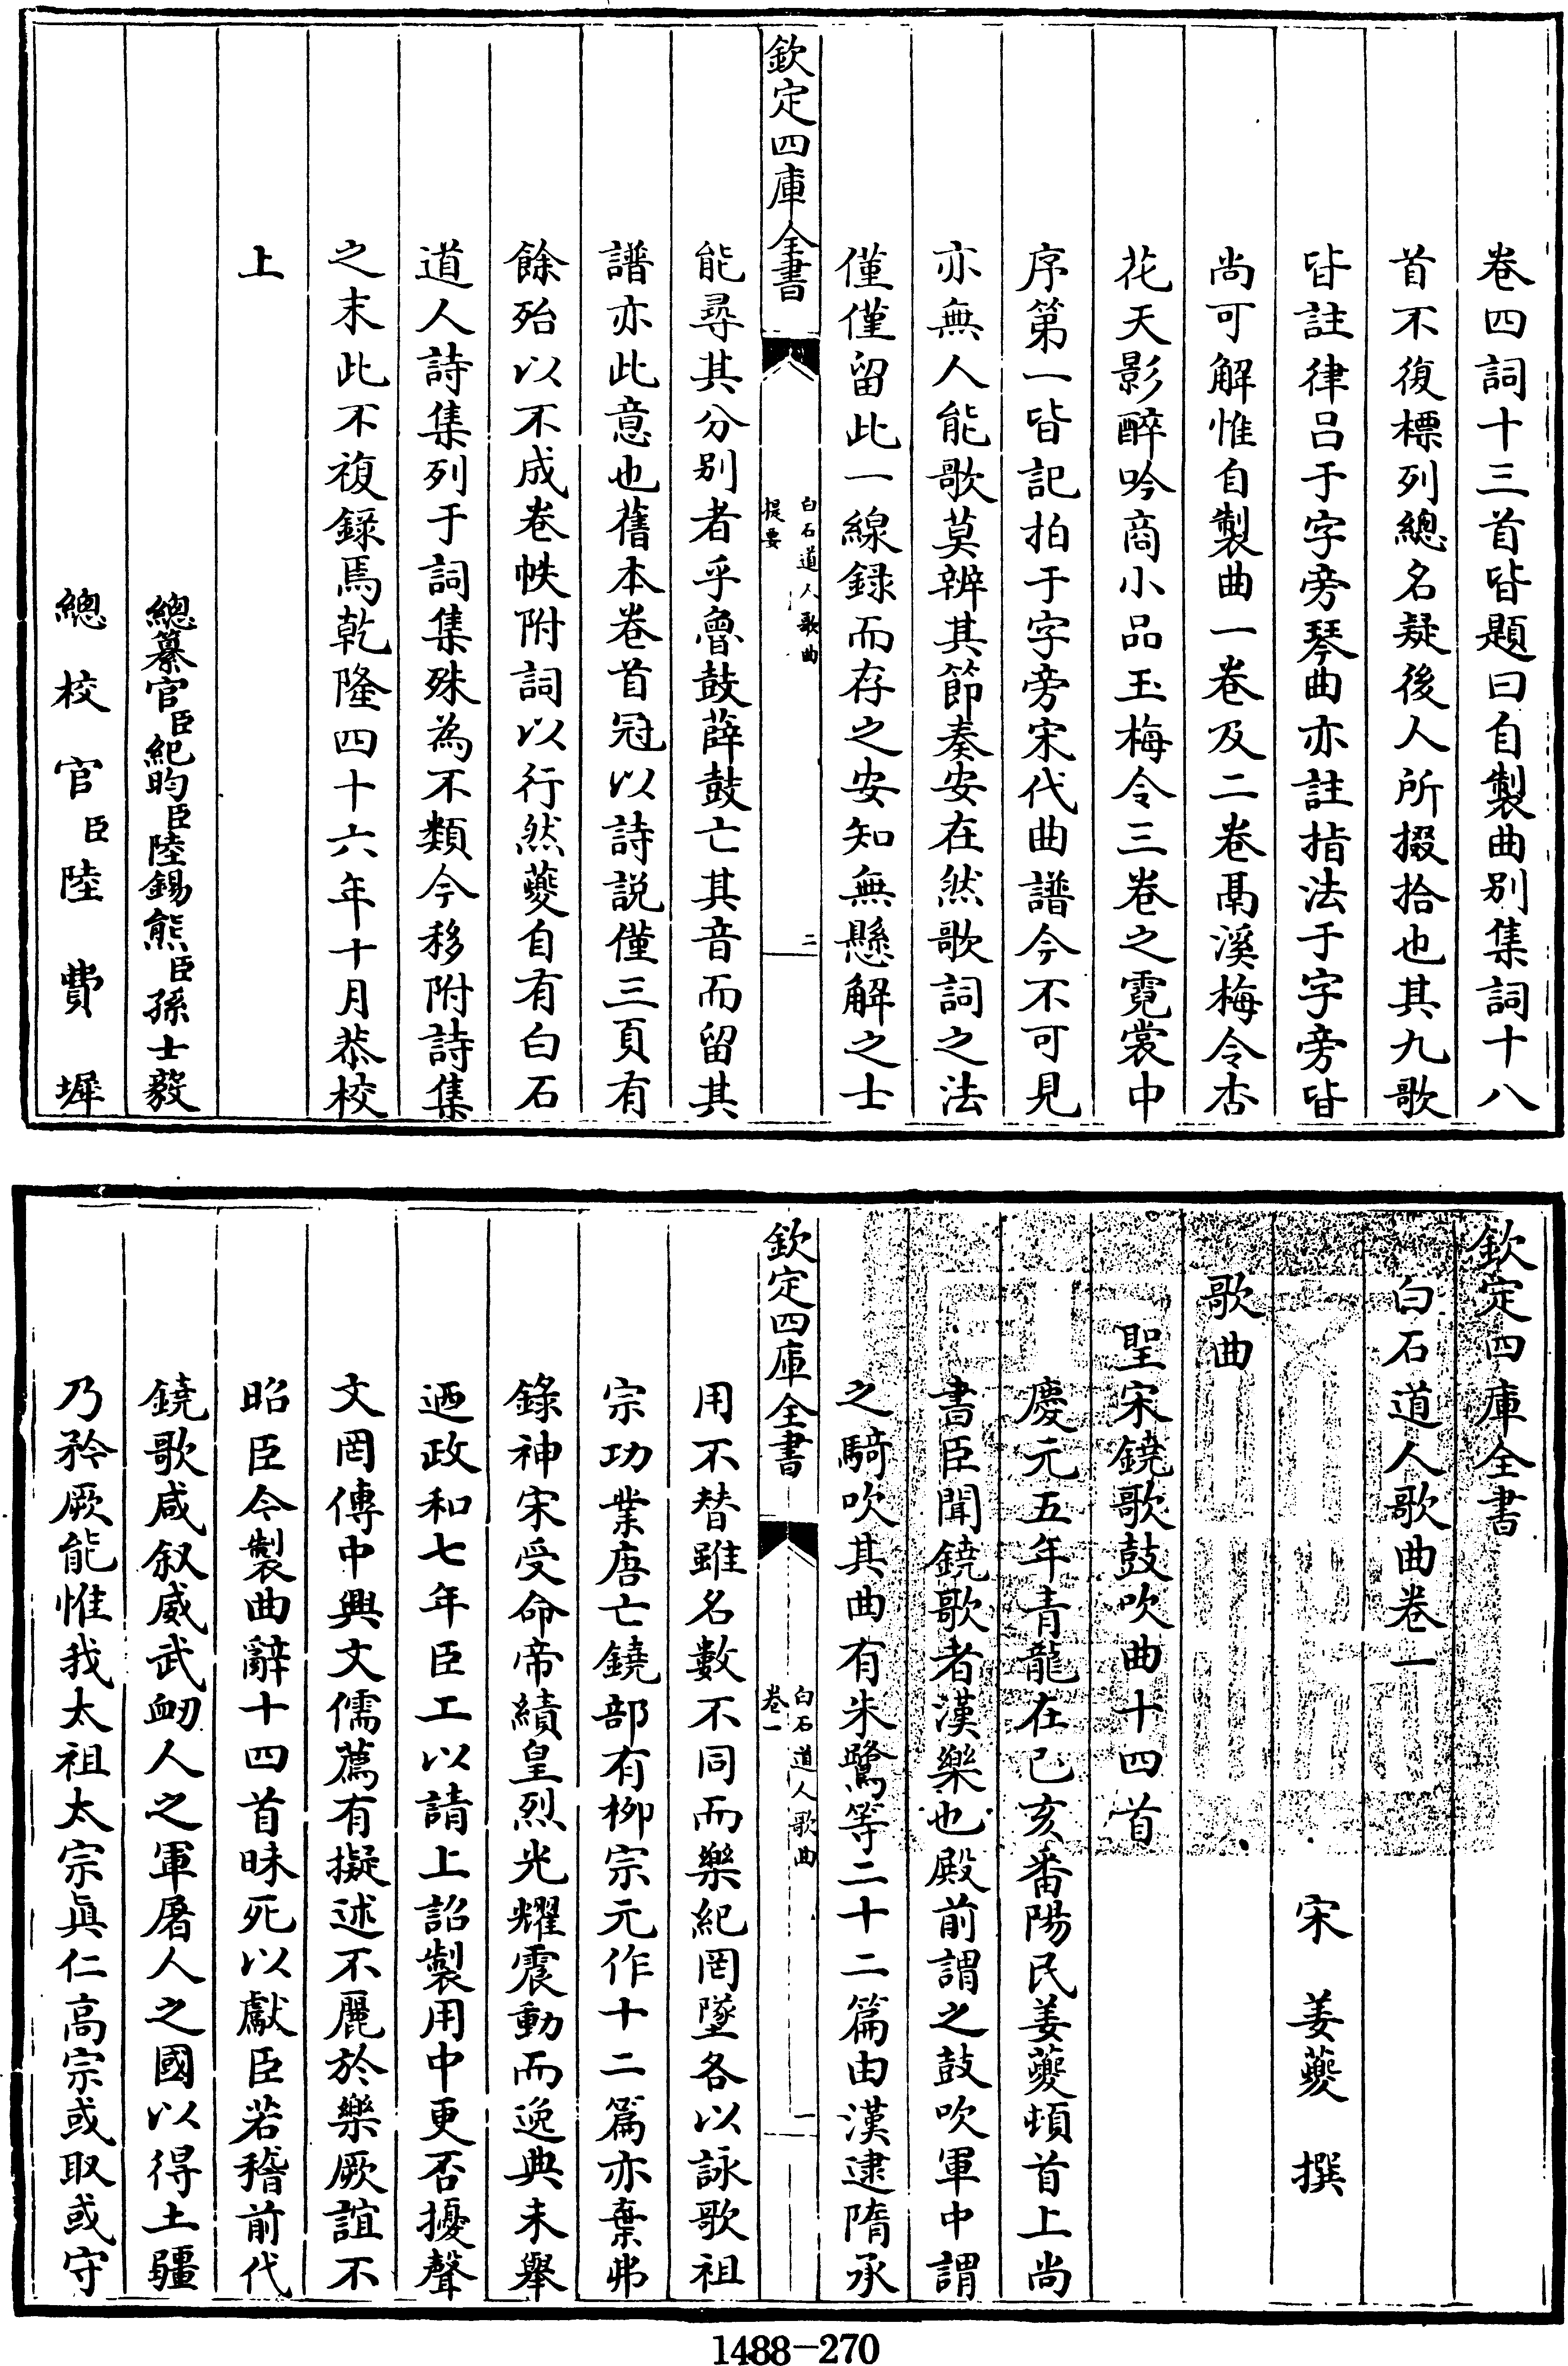 卷四詞十三首皆題曰自製曲别集詞十八
首不復標列總名疑後人所掇拾也其九歌
皆註律吕于字旁琴曲亦註指法于字旁皆
尚可解惟自製曲一卷及二卷鬲溪梅令杏
花天影醉吟商小品玉梅令三卷之霓裳中
序第一皆記拍于字旁宋代曲譜今不可見
亦無人能歌莫辨其節奏安在然歌詞之法
僅僅留此一線録而存之安知無懸解之士
欽定四庫全書
白石道人歌曲
提要
三
能尋其分别者乎魯鼓薛鼓亡其音而留其
譜亦此意也舊本卷首冠以詩説僅三頁有
餘殆以不成卷帙附詞以行然夔自有白石
道人詩集列于詞集殊為不類今移附詩集
之末此不複録焉乾隆四十六年十月恭校
上
總纂官臣紀昀臣陸錫熊臣孫士毅
總校官臣陸費墀
欽定四庫全書
白石道人歌曲卷一
宋 姜夔 撰
歌曲
聖宋鐃歌鼓吹曲十四首
慶元五年青龍在己亥番陽民姜夔頓首上尚
書臣聞鐃歌者漢樂也殿前謂之鼓吹軍中謂
之騎吹其曲有朱鷺等二十二篇由漢逮隋承
欽定四庫全書
白石道人歌曲
卷一
一
用不替雖名數不同而樂紀罔墜各以詠歌祖
宗功業唐亡鐃部有柳宗元作十二篇亦棄弗
錄神宋受命帝績皇烈光耀震動而逸典未舉
迺政和七年臣工以請上詔製用中更否擾聲
文罔傳中興文儒薦有擬述不麗於樂厥誼不
昭臣今製曲辭十四首昧死以獻臣若稽前代
鐃歌咸叙威武衂人之軍屠人之國以得土疆
乃矜厥能惟我太祖太宗眞仁高宗或取或守
1488-270